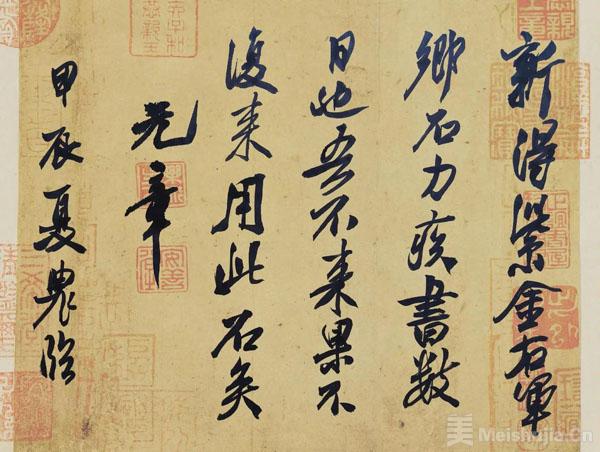 新得紫金右軍
鄉石力疾書數
日也吾不來果不
復來用此石矣
元章
甲辰夏臨
美 Meishujia.Cn